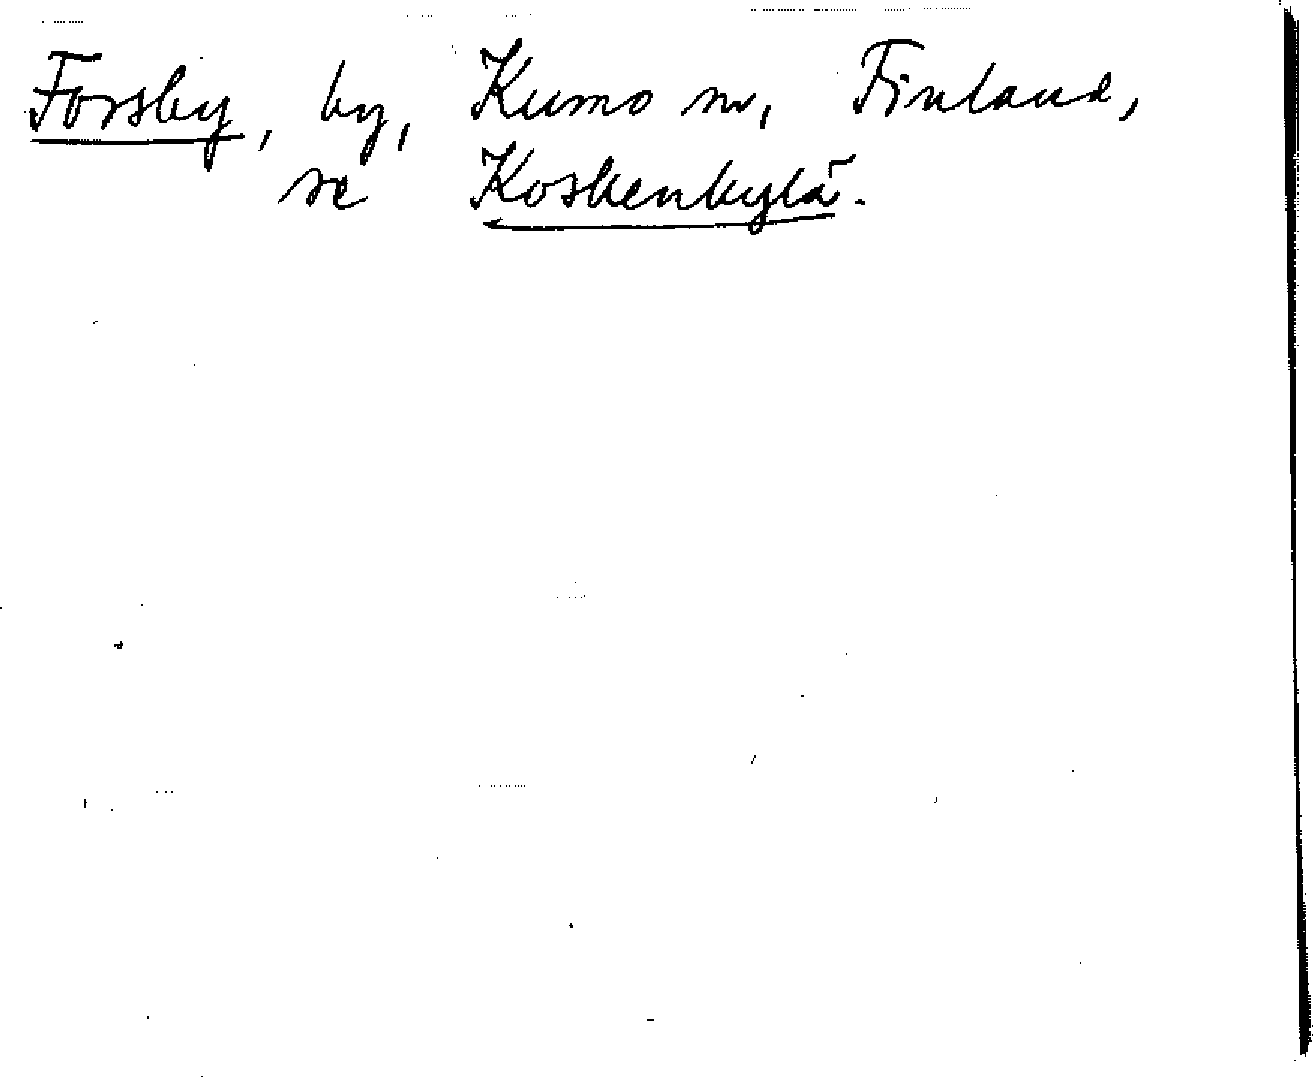 Forsby, by, Kumo sn, Finland,
se Koskenkylä.